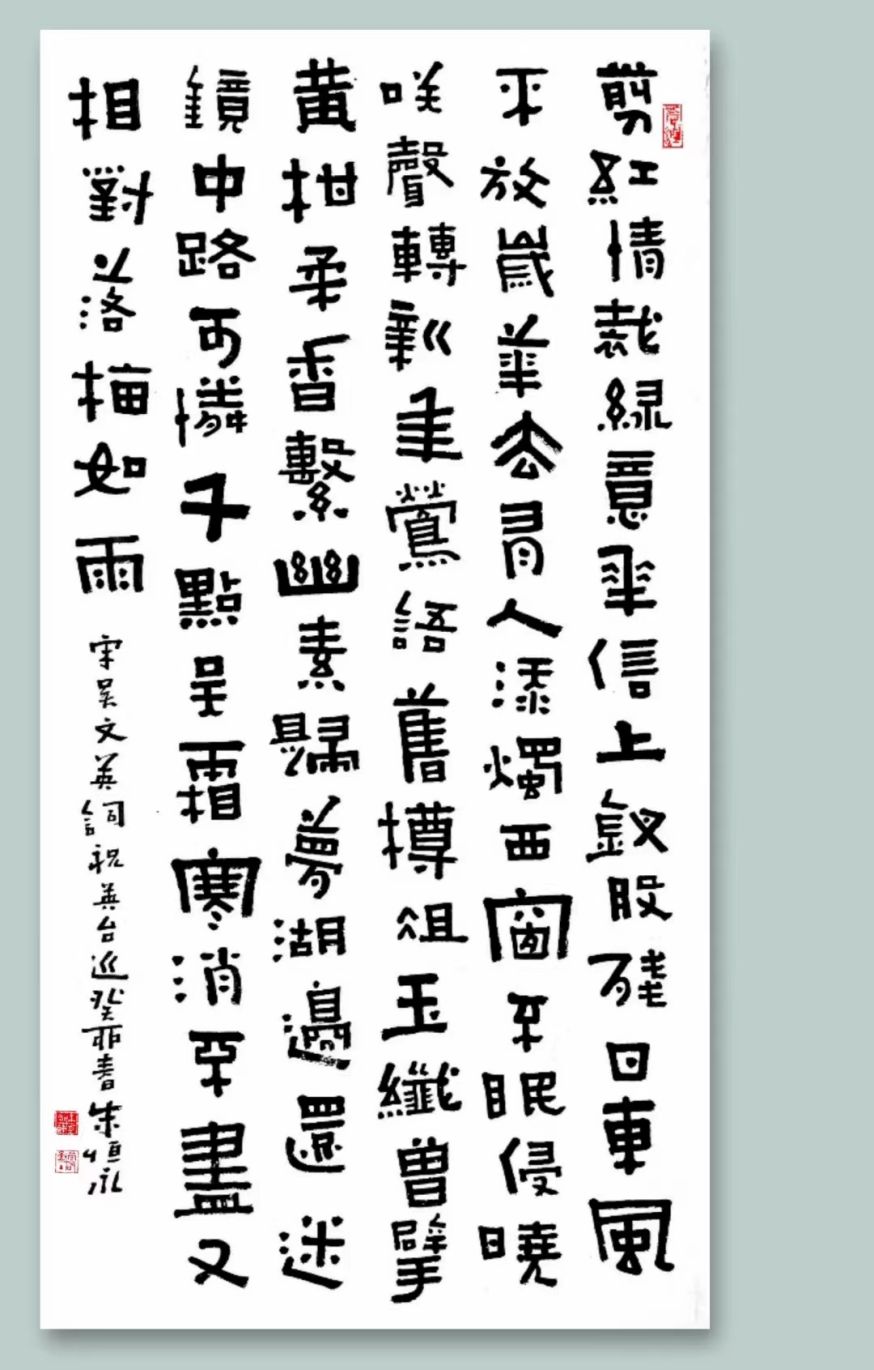 剪紅情裁綠意華信上釵股殘日東風
不放歲華去有人添燭西窗不眠侵曉
咲聲轉新年鶯語舊樽俎玉纖曾擘
黃柑柔香繫幽素歸夢湖邊還迷
鏡中路可憐千點吳霜寒消不盡又
相對落梅如雨
宋吳文英詞祝英台近